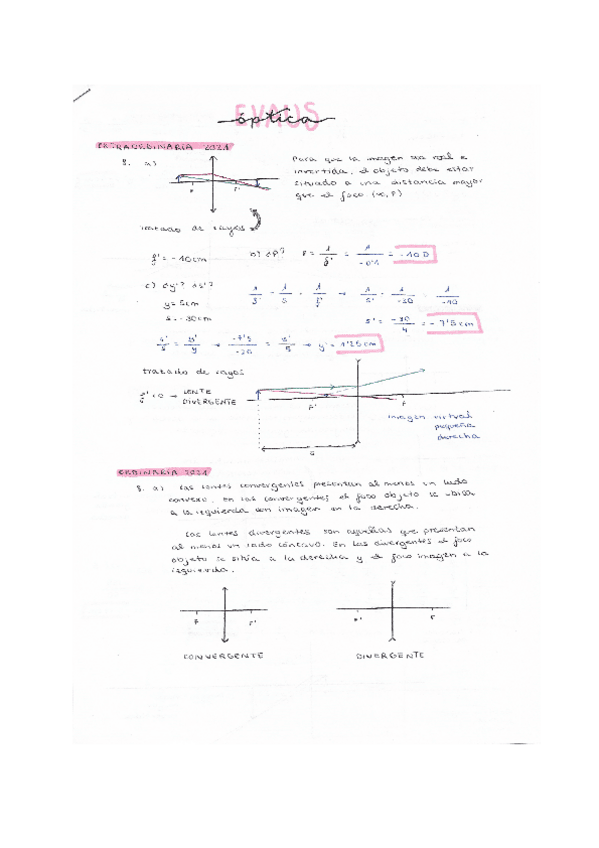 EVAUS
óptica
EXTRAORDINARIA 2021
8. a)
Para que la imagen sea real e
invertida, el objeto debe estar
situado a una distancia mayor
que el foco (∞, F)
F F'
tratado de rayos
f' = -10cm
b) ¿P? P = 1/f' = 1/-0'1 = -10 D
c) ¿y'? ¿s'?
y = 5cm
s = -30cm
1/s' - 1/s = 1/f' → 1/s' - 1/-30 = 1/-10
s' = -30/4 = -7'5cm
y'/y = s'/s → -7'5/-30 = y'/5 → y' = 1'25cm
tratado de rayos
LENTE
DIVERGENTE
F' F
imagen virtual
pequeña
derecha
ORDINARIA 2021
8. a) Las lentes convergentes presentan al menos un lado
convexo. En las convergentes el foco objeto se ubica
a la izquierda con imagen en la derecha.
Las lentes divergentes son aquellas que presentan
al menos un lado cóncavo. En las divergentes el foco
objeto se sitúa a la derecha y el foco imagen a la
izquierda.
F F' F' F
CONVERGENTE DIVERGENTE